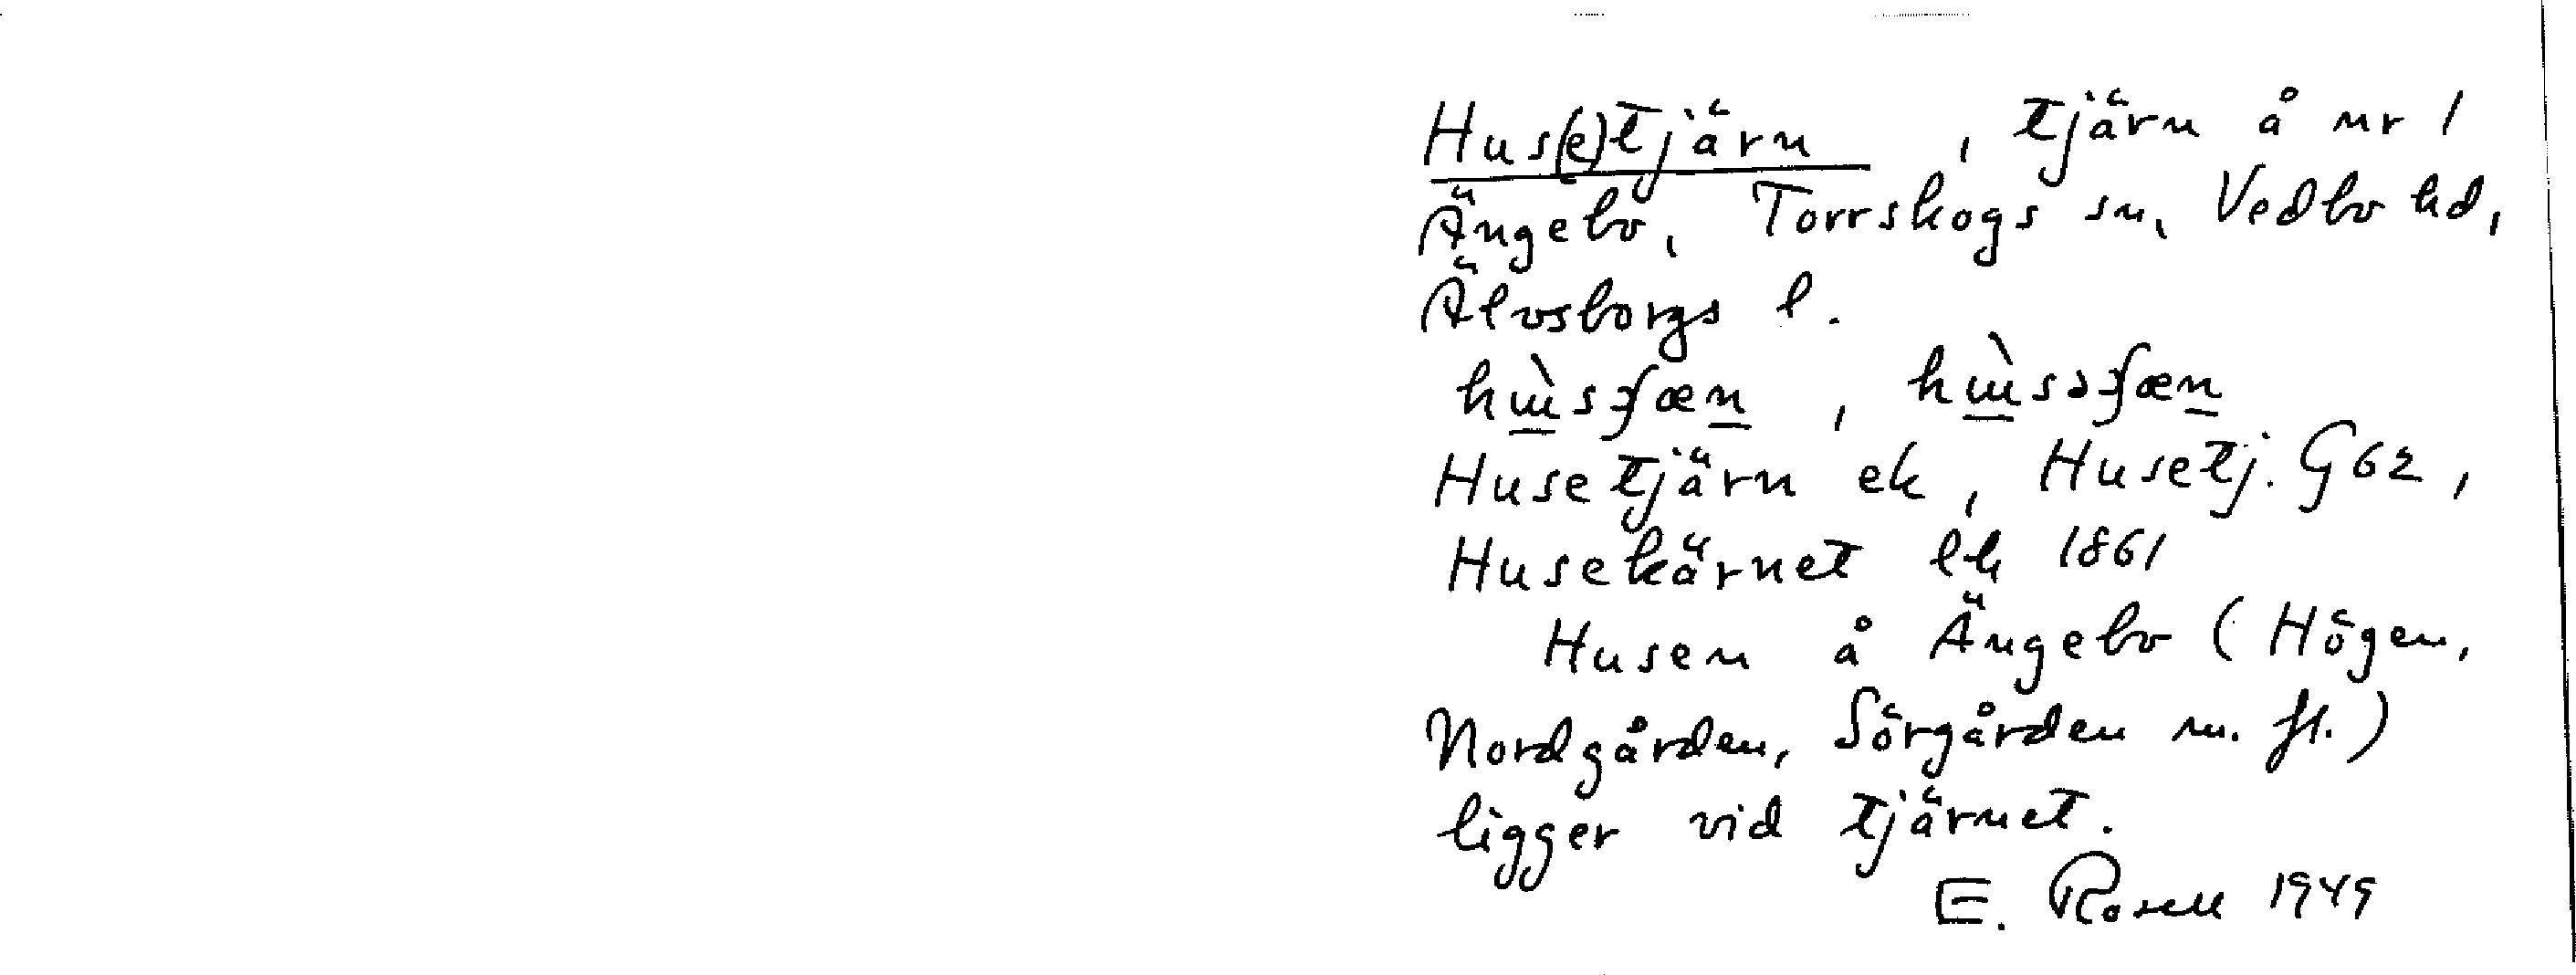 Hus(e)tjärn, tjärn å nr 1
Ängebo, Torrskogs sn, Vedbo hd,
Älvsborgs l.
Husetjärn ek, Husetj. G62,
Husekärnet lk 1861
Husen å Ängebo (Högen,
Nordgården, Sörgården m. fl.)
ligger vid tjärnet.
E. Rosell 1949